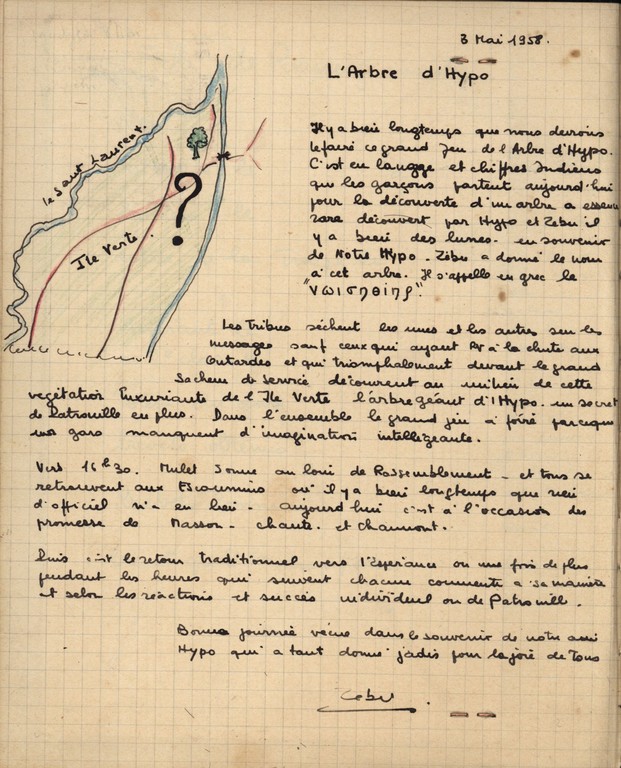 3 Mai 1958.
L'Arbre d'Hypo
le Saint Laurent.
Ile Verte.
?
Il y a bien longtemps que nous devions
refaire ce grand Jeu de l'Arbre d'Hypo.
C'est en langage et chiffres Indiens
que les garçons partent aujourd'hui
pour la découverte d'un arbre a essence
rare découvert par Hypo et Zébu il
y a bien des lunes. en souvenir
de Notre Hypo. Zébu a donné le nom
à cet arbre. Il s'appelle en grec le
Les Tribus sèchent les unes et les autres sur les
messages sauf ceux qui ayant RV à la chute aux
Outardes et qui triomphalement devant le grand
Sachem de Service découvrent au milieu de cette
vegétation luxuriante de l'Ile Verte l'arbre géant d'Hypo. un secret
de Patrouille en plus. Dans l'ensemble le grand jeu a foiré parceque
nos gars manquent d'imagination intelligeante.
Vers 16h30. Mulet sonne au loin le Rassemblement - et tous se
retrouvent aux Escoumins où il y a bien longtemps que rien
d'officiel n'a eu lieu - aujourd'hui c'est à l'occasion des
promesse de Masson - chante. et Chaumont.
Puis c'est le retour traditionnel vers l'Espérance ou une fois de plus
pendant les heures qui suivent chacun commente a sa manière
et selon les réactions et succès individuel ou de Patrouille.
Bonne journée vécue dans le souvenir de notre ami
Hypo qui a tant donné jadis pour la joie de Tous